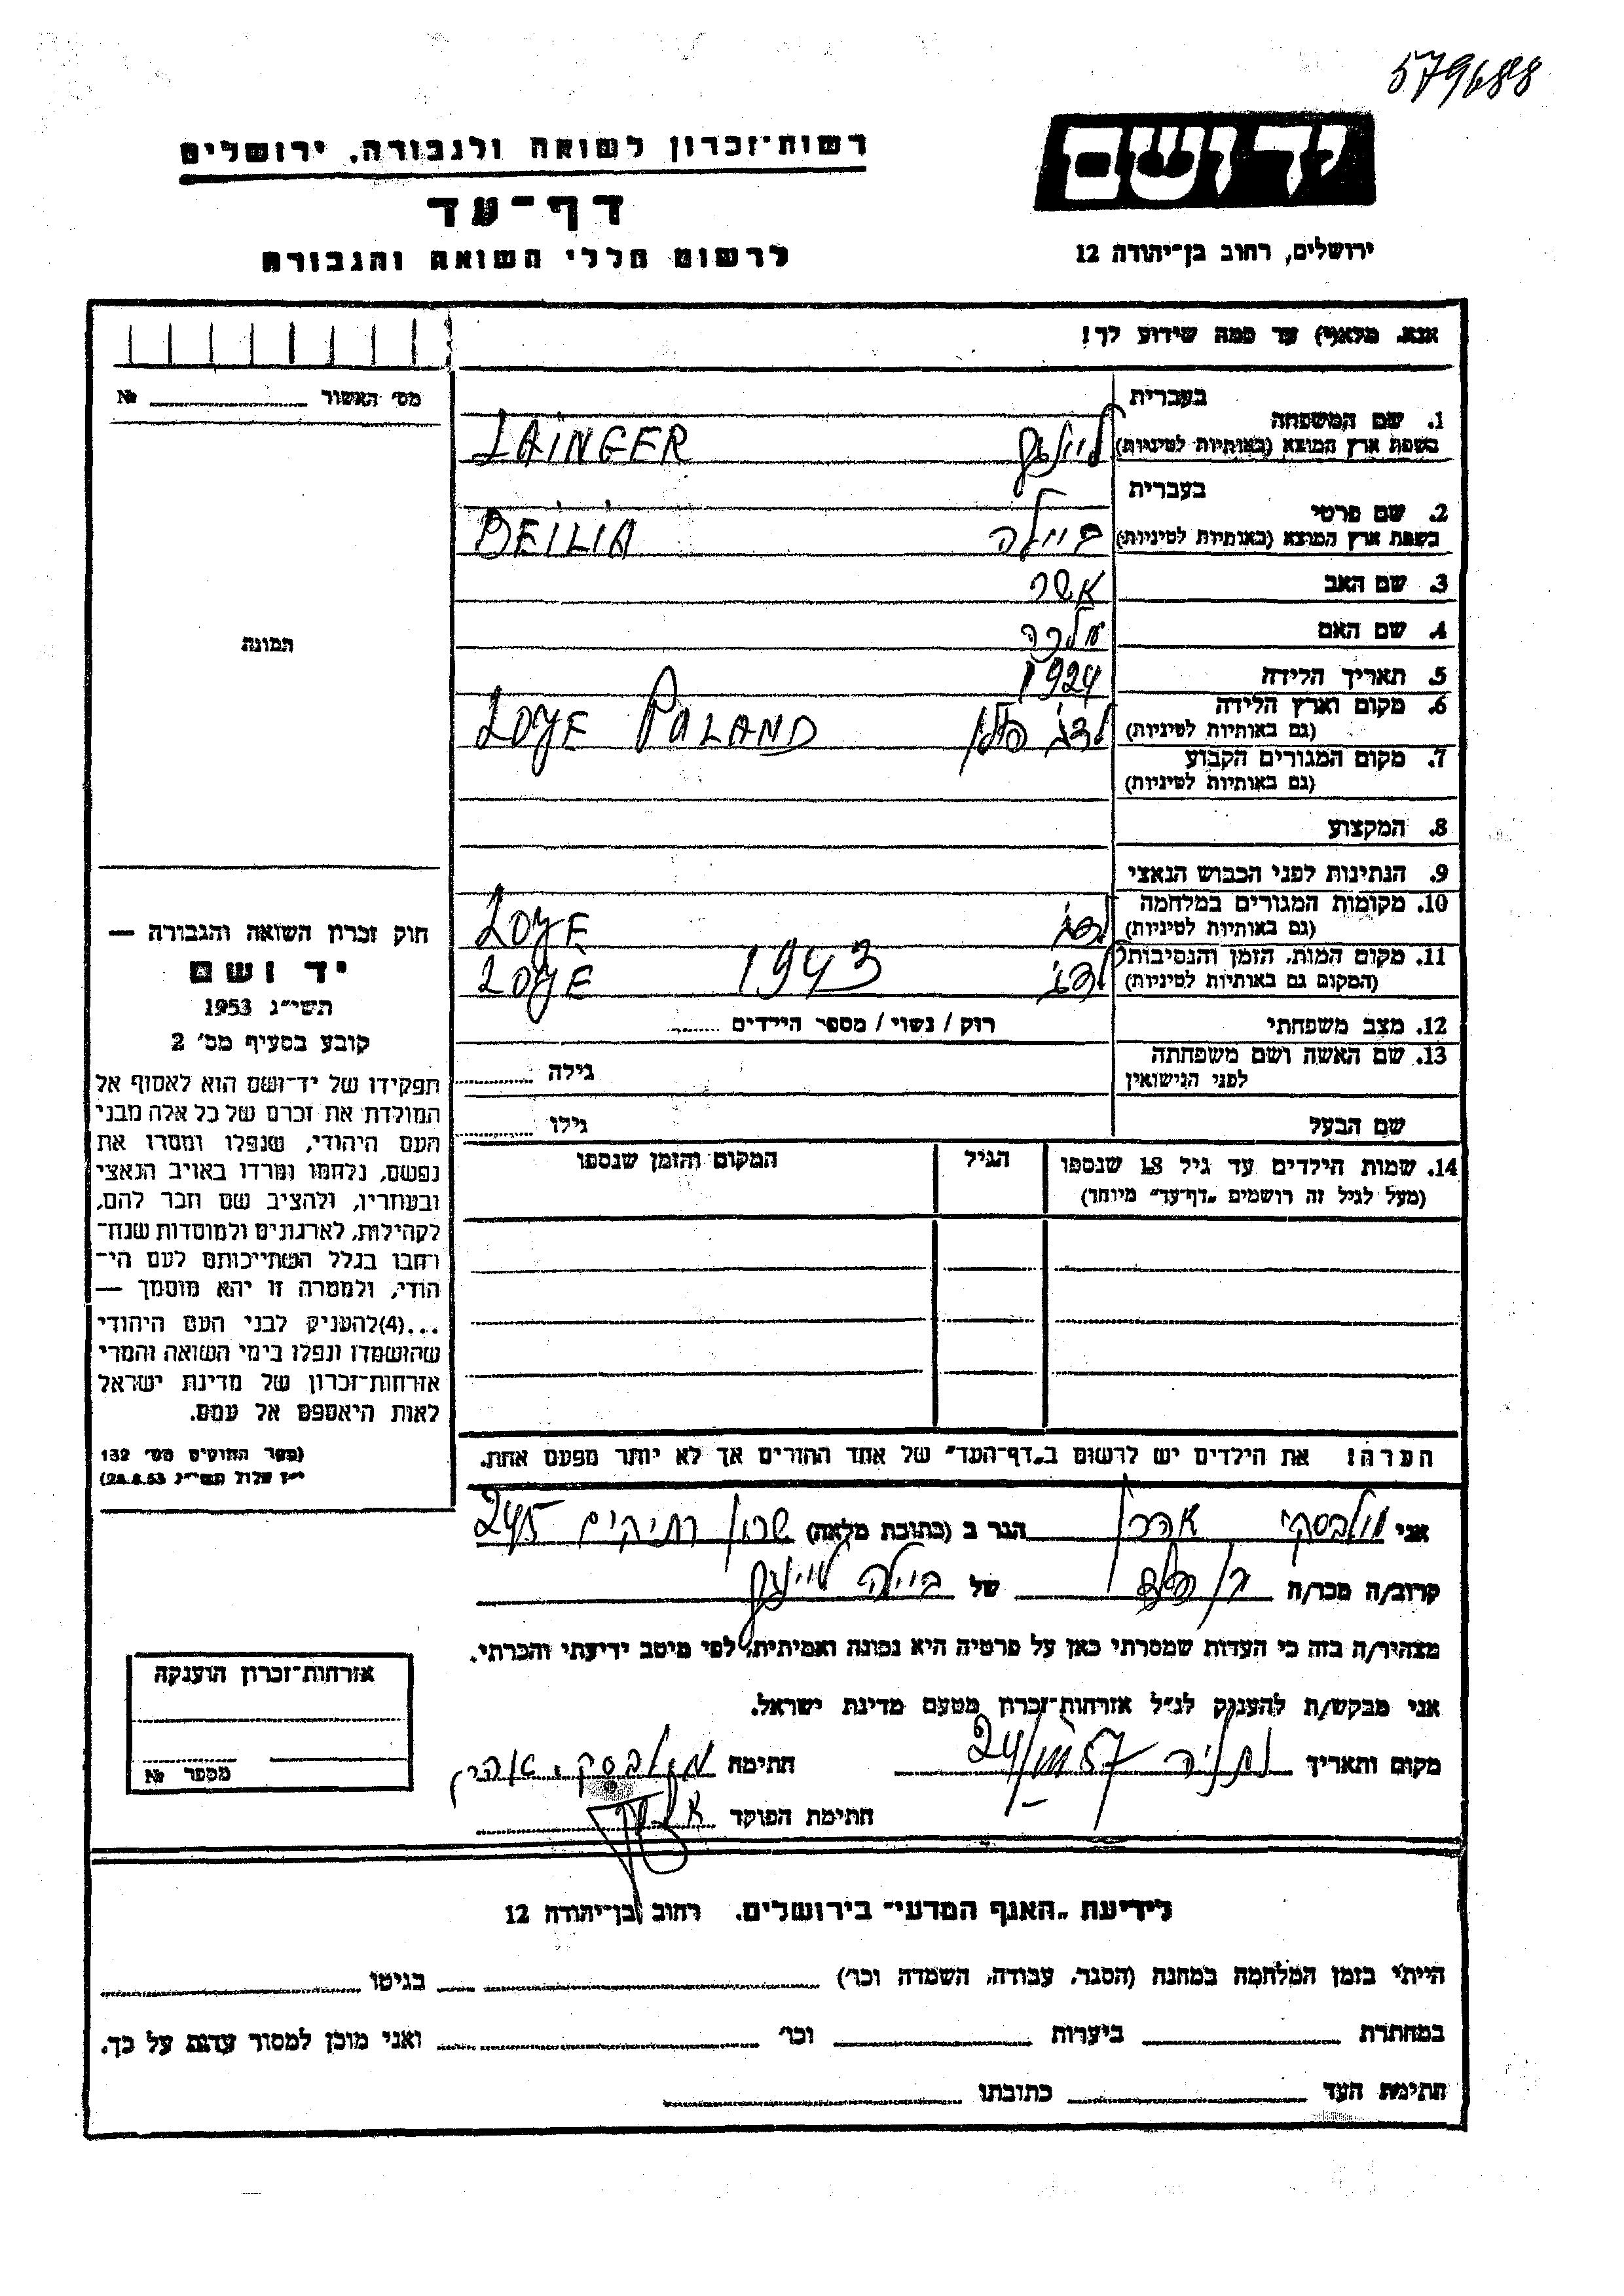 579688
יד ושם
ירושלים, רחוב בן־יהודה 12
רשות־זכרון לשואה ולגבורה, ירושלים
דף־עד
לרשום חללי השואה והגבורה
אנא, מלא(י) עד כמה שידוע לך!
מס' האשור №
תמונה
בעברית
1. שם המשפחה
בשפת ארץ המוצא (באותיות לטיניות)
LAINGER
בעברית
2. שם פרטי
בשפת ארץ המוצא (באותיות לטיניות)
ביילה BEILIA
3. שם האב אשר
4. שם האם מלכה
5. תאריך הלידה 1924
6. מקום וארץ הלידה
(גם באותיות לטיניות)
לודג' פולין LOYE POLAND
7. מקום המגורים הקבוע
(גם באותיות לטיניות)
8. המקצוע
9. הנתינות לפני הכבוש הנאצי
10. מקומות המגורים במלחמה
(גם באותיות לטיניות)
LOYE
11. מקום המות, הזמן והנסיבות
(המקום גם באותיות לטיניות)
1943 LOYE
12. מצב משפחתי רוק / נשוי / מספר הילדים
13. שם האשה ושם משפחתה
לפני הנישואין
גילה
שם הבעל גילו
14. שמות הילדים עד גיל 18 שנספו
(מעל לגיל זה רושמים "דף־עד" מיוחד)
הגיל
המקום והזמן שנספו
הערה! את הילדים יש לרשום ב"דף־העד" של אחד ההורים אך לא יותר מפעם אחת.
חוק זכרון השואה והגבורה —
יד ושם
תשי"ג 1953
קובע בסעיף מס' 2
תפקידו של יד־ושם הוא לאסוף אל
המולדת את זכרם של כל אלה מבני
העם היהודי, שנפלו ומסרו את
נפשם, נלחמו ומרדו באויב הנאצי
ובעוזריו, ולהציב שם וזכר להם,
לקהילות, לארגונים ולמוסדות שנח־
רבו בגלל השתייכותם לעם הי־
הודי, ולמטרה זו יהא מוסמך —
...(4)להעניק לבני העם היהודי
שהושמדו ונפלו בימי השואה והמרי
אזרחות־זכרון של מדינת ישראל
לאות היאספם אל עמם.
(ספר החוקים מס' 132
י"ז אלול תשי"ג 28.8.53)
אני אהרון הגר ב (כתובת מלאה) 245
קרוב/ה מכר/ה של ביילה
מצהיר/ה בזה כי העדות שמסרתי כאן על פרטיה היא נכונה ואמיתית, לפי מיטב ידיעתי והכרתי.
אני מבקש/ת להעניק לנ"ל אזרחות־זכרון מטעם מדינת ישראל.
מקום ותאריך נתניה חתימה
חתימת הפוקד
אזרחות־זכרון הוענקה
מספר №
לידיעת "האגף המדעי" בירושלים, רחוב בן־יהודה 12
הייתי בזמן המלחמה במחנה (הסגר, עבודה, השמדה וכו') בגיטו
במחתרת ביערות וכו' ואני מוכן למסור עדות על כך.
חתימת העד כתובתו